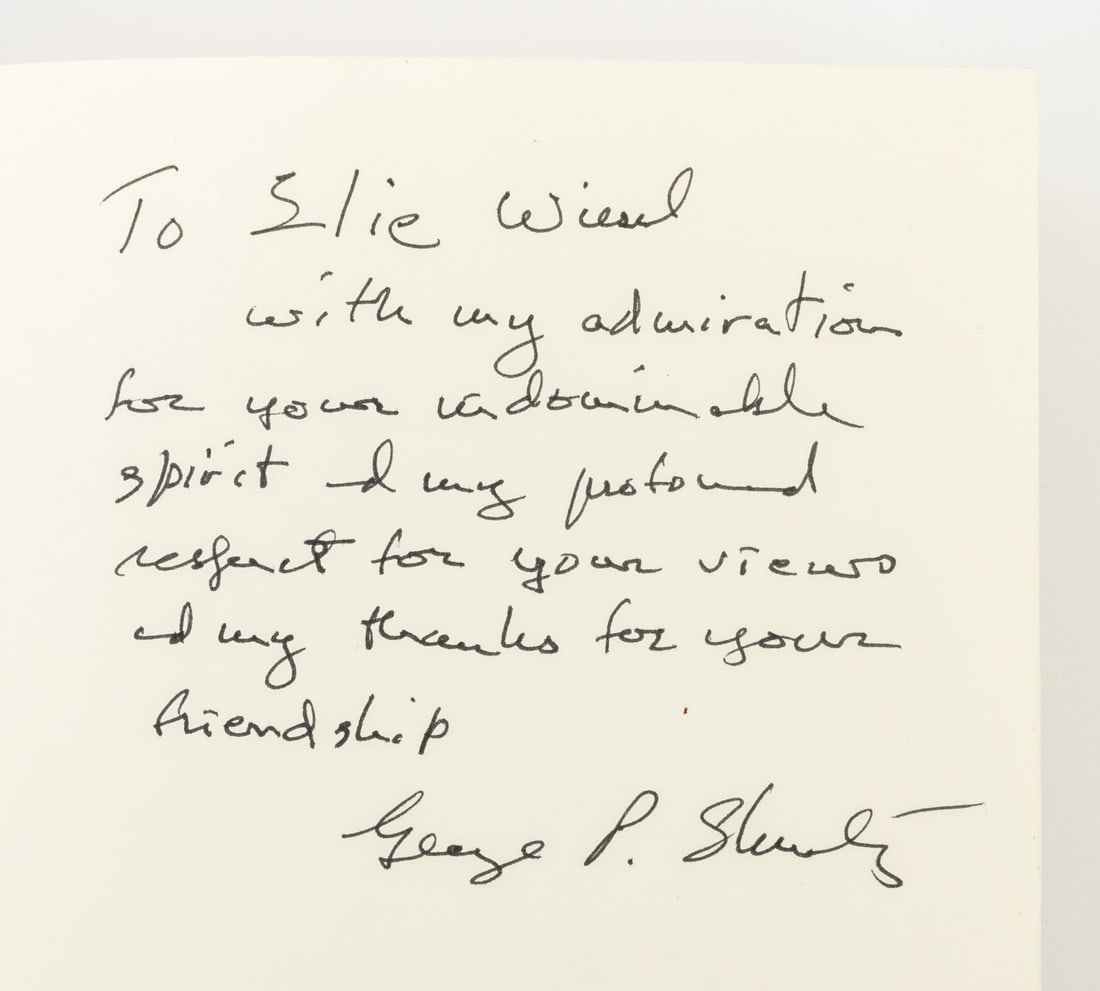 To Elie Wiesel
with my admiration
for your indominable
spirit and my profound
respect for your views
and my thanks for your
friendship
George P. Shultz